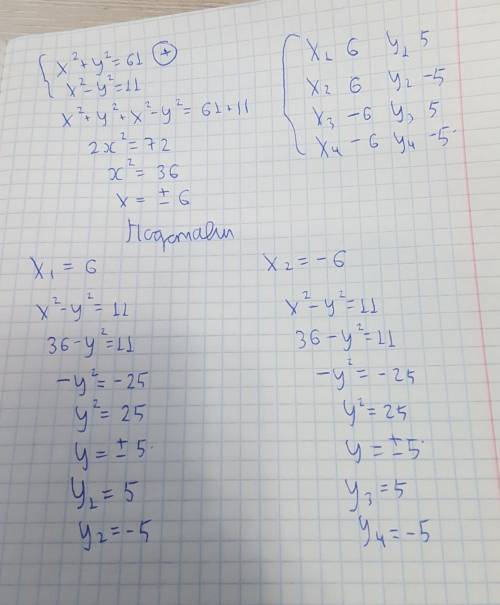 x²+y²=61 (+)
x²-y²=11
x²+y²+x²-y²=61+11
2x²=72
x²=36
x=±6
x₁ 6 y₁ 5
x₂ 6 y₂ -5
x₃ -6 y₃ 5
x₄ -6 y₄ -5
Подставим
x₁=6
x²-y²=11
36-y²=11
-y²=-25
y²=25
y=±5
y₁=5
y₂=-5
x₂=-6
x²-y²=11
36-y²=11
-y²=-25
y²=25
y=±5
y₃=5
y₄=-5